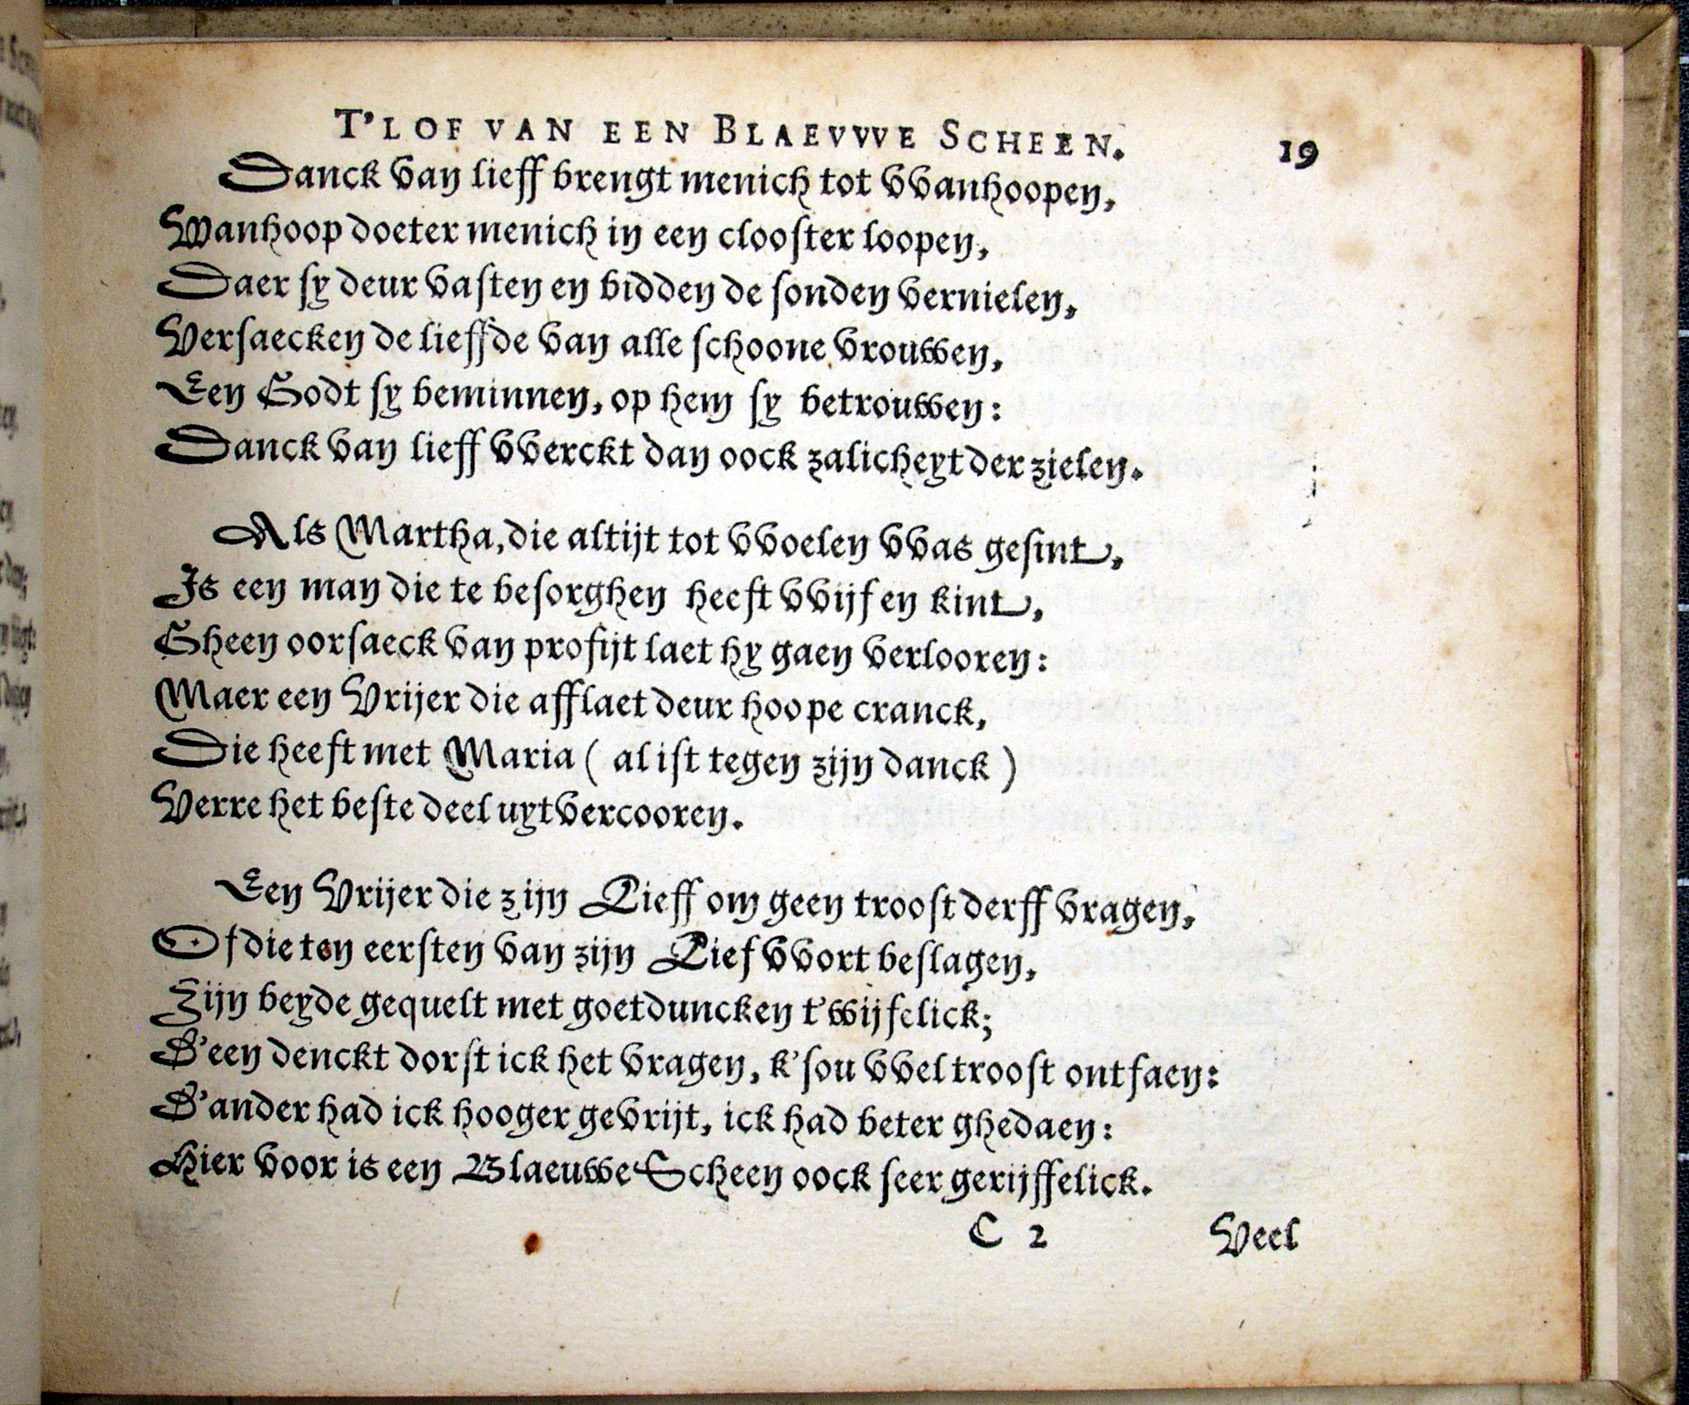 T'LOF VAN EEN BLAEVWE SCHEEN. 19
Danck van lieff brengt menich tot vvanhoopen,
Wanhoop doeter menich in een clooster loopen,
Daer sy deur vasten en bidden de sonden vernielen,
Versaecken de lieffde van alle schoone vrouwen,
Een Godt sy beminnen, op hem sy betrouwen:
Danck van lieff vverckt dan oock zalicheyt der zielen.
Als Martha, die altijt tot vvoelen vvas gesint,
Is een man die te besorghen heeft vvijf en kint,
Gheen oorsaeck van profijt laet hy gaen verlooren:
Maer een Vrijer die afflaet deur hoope cranck,
Die heeft met Maria ( al ist tegen zijn danck )
Verre het beste deel uytvercooren.
Een Vrijer die zijn Lieff om geen troost derff vragen,
Of die ten eersten van zijn Lief vvort beslagen,
Zijn beyde gequelt met goetduncken t'wijfelick;
D'een denckt dorst ick het vragen, k'sou vvel troost ontfaen:
D'ander had ick hooger gevrijt, ick had beter ghedaen:
Hier voor is een Blaeuwe Scheen oock seer gerijffelick.
C 2 Veel